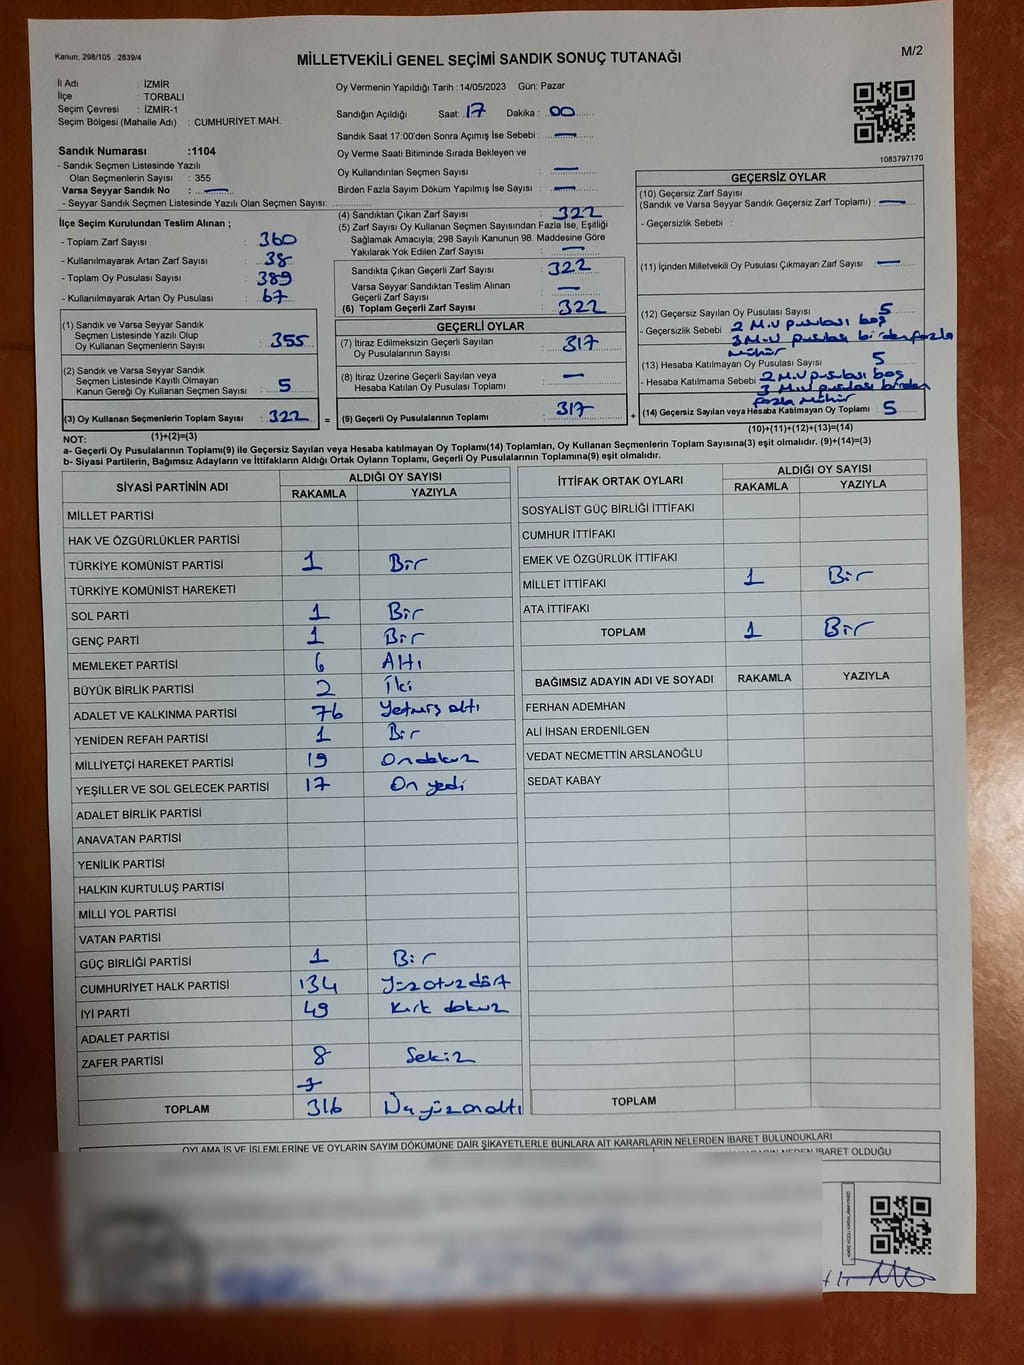 Kanun; 298/105 , 2839/4
MİLLETVEKİLİ GENEL SEÇİMİ SANDIK SONUÇ TUTANAĞI
M/2
İl Adı : İZMİR
İlçe : TORBALI
Seçim Çevresi : İZMİR-1
Seçim Bölgesi (Mahalle Adı) : CUMHURİYET MAH.
Sandık Numarası :1104
- Sandık Seçmen Listesinde Yazılı
Olan Seçmenlerin Sayısı : 355
Varsa Seyyar Sandık No : —
- Seyyar Sandık Seçmen Listesinde Yazılı Olan Seçmen Sayısı:
Oy Vermenin Yapıldığı Tarih :14/05/2023 Gün: Pazar
Sandığın Açıldığı Saat: 17 Dakika : 00
Sandık Saat 17:00'den Sonra Açımış İse Sebebi : —
Oy Verme Saati Bitiminde Sırada Bekleyen ve
Oy Kullandırılan Seçmen Sayısı : —
Birden Fazla Sayım Döküm Yapılmış İse Sayısı : —
1083797170
İlçe Seçim Kurulundan Teslim Alınan ;
- Toplam Zarf Sayısı : 360
- Kullanılmayarak Artan Zarf Sayısı : 38
- Toplam Oy Pusulası Sayısı : 389
- Kullanılmayarak Artan Oy Pusulası : 67
(1) Sandık ve Varsa Seyyar Sandık
Seçmen Listesinde Yazılı Olup
Oy Kullanan Seçmenlerin Sayısı : 355
(2) Sandık ve Varsa Seyyar Sandık
Seçmen Listesinde Kayıtlı Olmayan
Kanun Gereği Oy Kullanan Seçmen Sayısı : 5
(3) Oy Kullanan Seçmenlerin Toplam Sayısı : 322 =
(1)+(2)=(3)
(4) Sandıktan Çıkan Zarf Sayısı : 322
(5) Zarf Sayısı Oy Kullanan Seçmen Sayısından Fazla İse, Eşitliği
Sağlamak Amacıyla, 298 Sayılı Kanunun 98. Maddesine Göre
Yakılarak Yok Edilen Zarf Sayısı : —
Sandıkta Çıkan Geçerli Zarf Sayısı : 322
Varsa Seyyar Sandıktan Teslim Alınan
Geçerli Zarf Sayısı : —
(6) Toplam Geçerli Zarf Sayısı : 322
GEÇERLİ OYLAR
(7) İtiraz Edilmeksizin Geçerli Sayılan
Oy Pusulalarının Sayısı : 317
(8) İtiraz Üzerine Geçerli Sayılan veya
Hesaba Katılan Oy Pusulası Toplamı : —
(9) Geçerli Oy Pusulalarının Toplamı : 317 +
GEÇERSİZ OYLAR
(10) Geçersiz Zarf Sayısı
(Sandık ve Varsa Seyyar Sandık Geçersiz Zarf Toplamı) : —
- Geçersizlik Sebebi :
(11) İçinden Milletvekili Oy Pusulası Çıkmayan Zarf Sayısı : —
(12) Geçersiz Sayılan Oy Pusulası Sayısı : 5
- Geçersizlik Sebebi : 2 M.V pusulası boş
3 M.V pusulası birden fazla
mühür
(13) Hesaba Katılmayan Oy Pusulası Sayısı : 5
- Hesaba Katılmama Sebebi : 2 M.V pusulası boş
3 M.V pusulası birden
fazla mühür
(14) Geçersiz Sayılan veya Hesaba Katılmayan Oy Toplamı : 5
(10)+(11)+(12)+(13)=(14)
NOT:
a- Geçerli Oy Pusulalarının Toplamı(9) ile Geçersiz Sayılan veya Hesaba katılmayan Oy Toplamı(14) Toplamları, Oy Kullanan Seçmenlerin Toplam Sayısına(3) eşit olmalıdır. (9)+(14)=(3)
b- Siyasi Partilerin, Bağımsız Adayların ve İttifakların Aldığı Ortak Oyların Toplamı, Geçerli Oy Pusulalarının Toplamına(9) eşit olmalıdır.
SİYASİ PARTİNİN ADI ALDIĞI OY SAYISI
RAKAMLA YAZIYLA
MİLLET PARTİSİ
HAK VE ÖZGÜRLÜKLER PARTİSİ
TÜRKİYE KOMÜNİST PARTİSİ 1 Bir
TÜRKİYE KOMÜNİST HAREKETİ
SOL PARTİ 1 Bir
GENÇ PARTİ 1 Bir
MEMLEKET PARTİSİ 6 Altı
BÜYÜK BİRLİK PARTİSİ 2 İki
ADALET VE KALKINMA PARTİSİ 76 Yetmiş altı
YENİDEN REFAH PARTİSİ 1 Bir
MİLLİYETÇİ HAREKET PARTİSİ 19 Ondokuz
YEŞİLLER VE SOL GELECEK PARTİSİ 17 On yedi
ADALET BİRLİK PARTİSİ
ANAVATAN PARTİSİ
YENİLİK PARTİSİ
HALKIN KURTULUŞ PARTİSİ
MİLLİ YOL PARTİSİ
VATAN PARTİSİ
GÜÇ BİRLİĞİ PARTİSİ 1 Bir
CUMHURİYET HALK PARTİSİ 134 Yüzotuzdört
İYİ PARTİ 49 Kırk dokuz
ADALET PARTİSİ
ZAFER PARTİSİ 8 Sekiz
TOPLAM 316 Üçyüzonaltı
İTTİFAK ORTAK OYLARI ALDIĞI OY SAYISI
RAKAMLA YAZIYLA
SOSYALİST GÜÇ BİRLİĞİ İTTİFAKI
CUMHUR İTTİFAKI
EMEK VE ÖZGÜRLÜK İTTİFAKI
MİLLET İTTİFAKI 1 Bir
ATA İTTİFAKI
TOPLAM 1 Bir
BAĞIMSIZ ADAYIN ADI VE SOYADI RAKAMLA YAZIYLA
FERHAN ADEMHAN
ALİ İHSAN ERDENİLGEN
VEDAT NECMETTİN ARSLANOĞLU
SEDAT KABAY
TOPLAM
OYLAMA İŞ VE İŞLEMLERİNE VE OYLARIN SAYIM DÖKÜMÜNE DAİR ŞİKAYETLERLE BUNLARA AİT KARARLARIN NELERDEN İBARET BULUNDUKLARI
NEDEN İBARET OLDUĞU